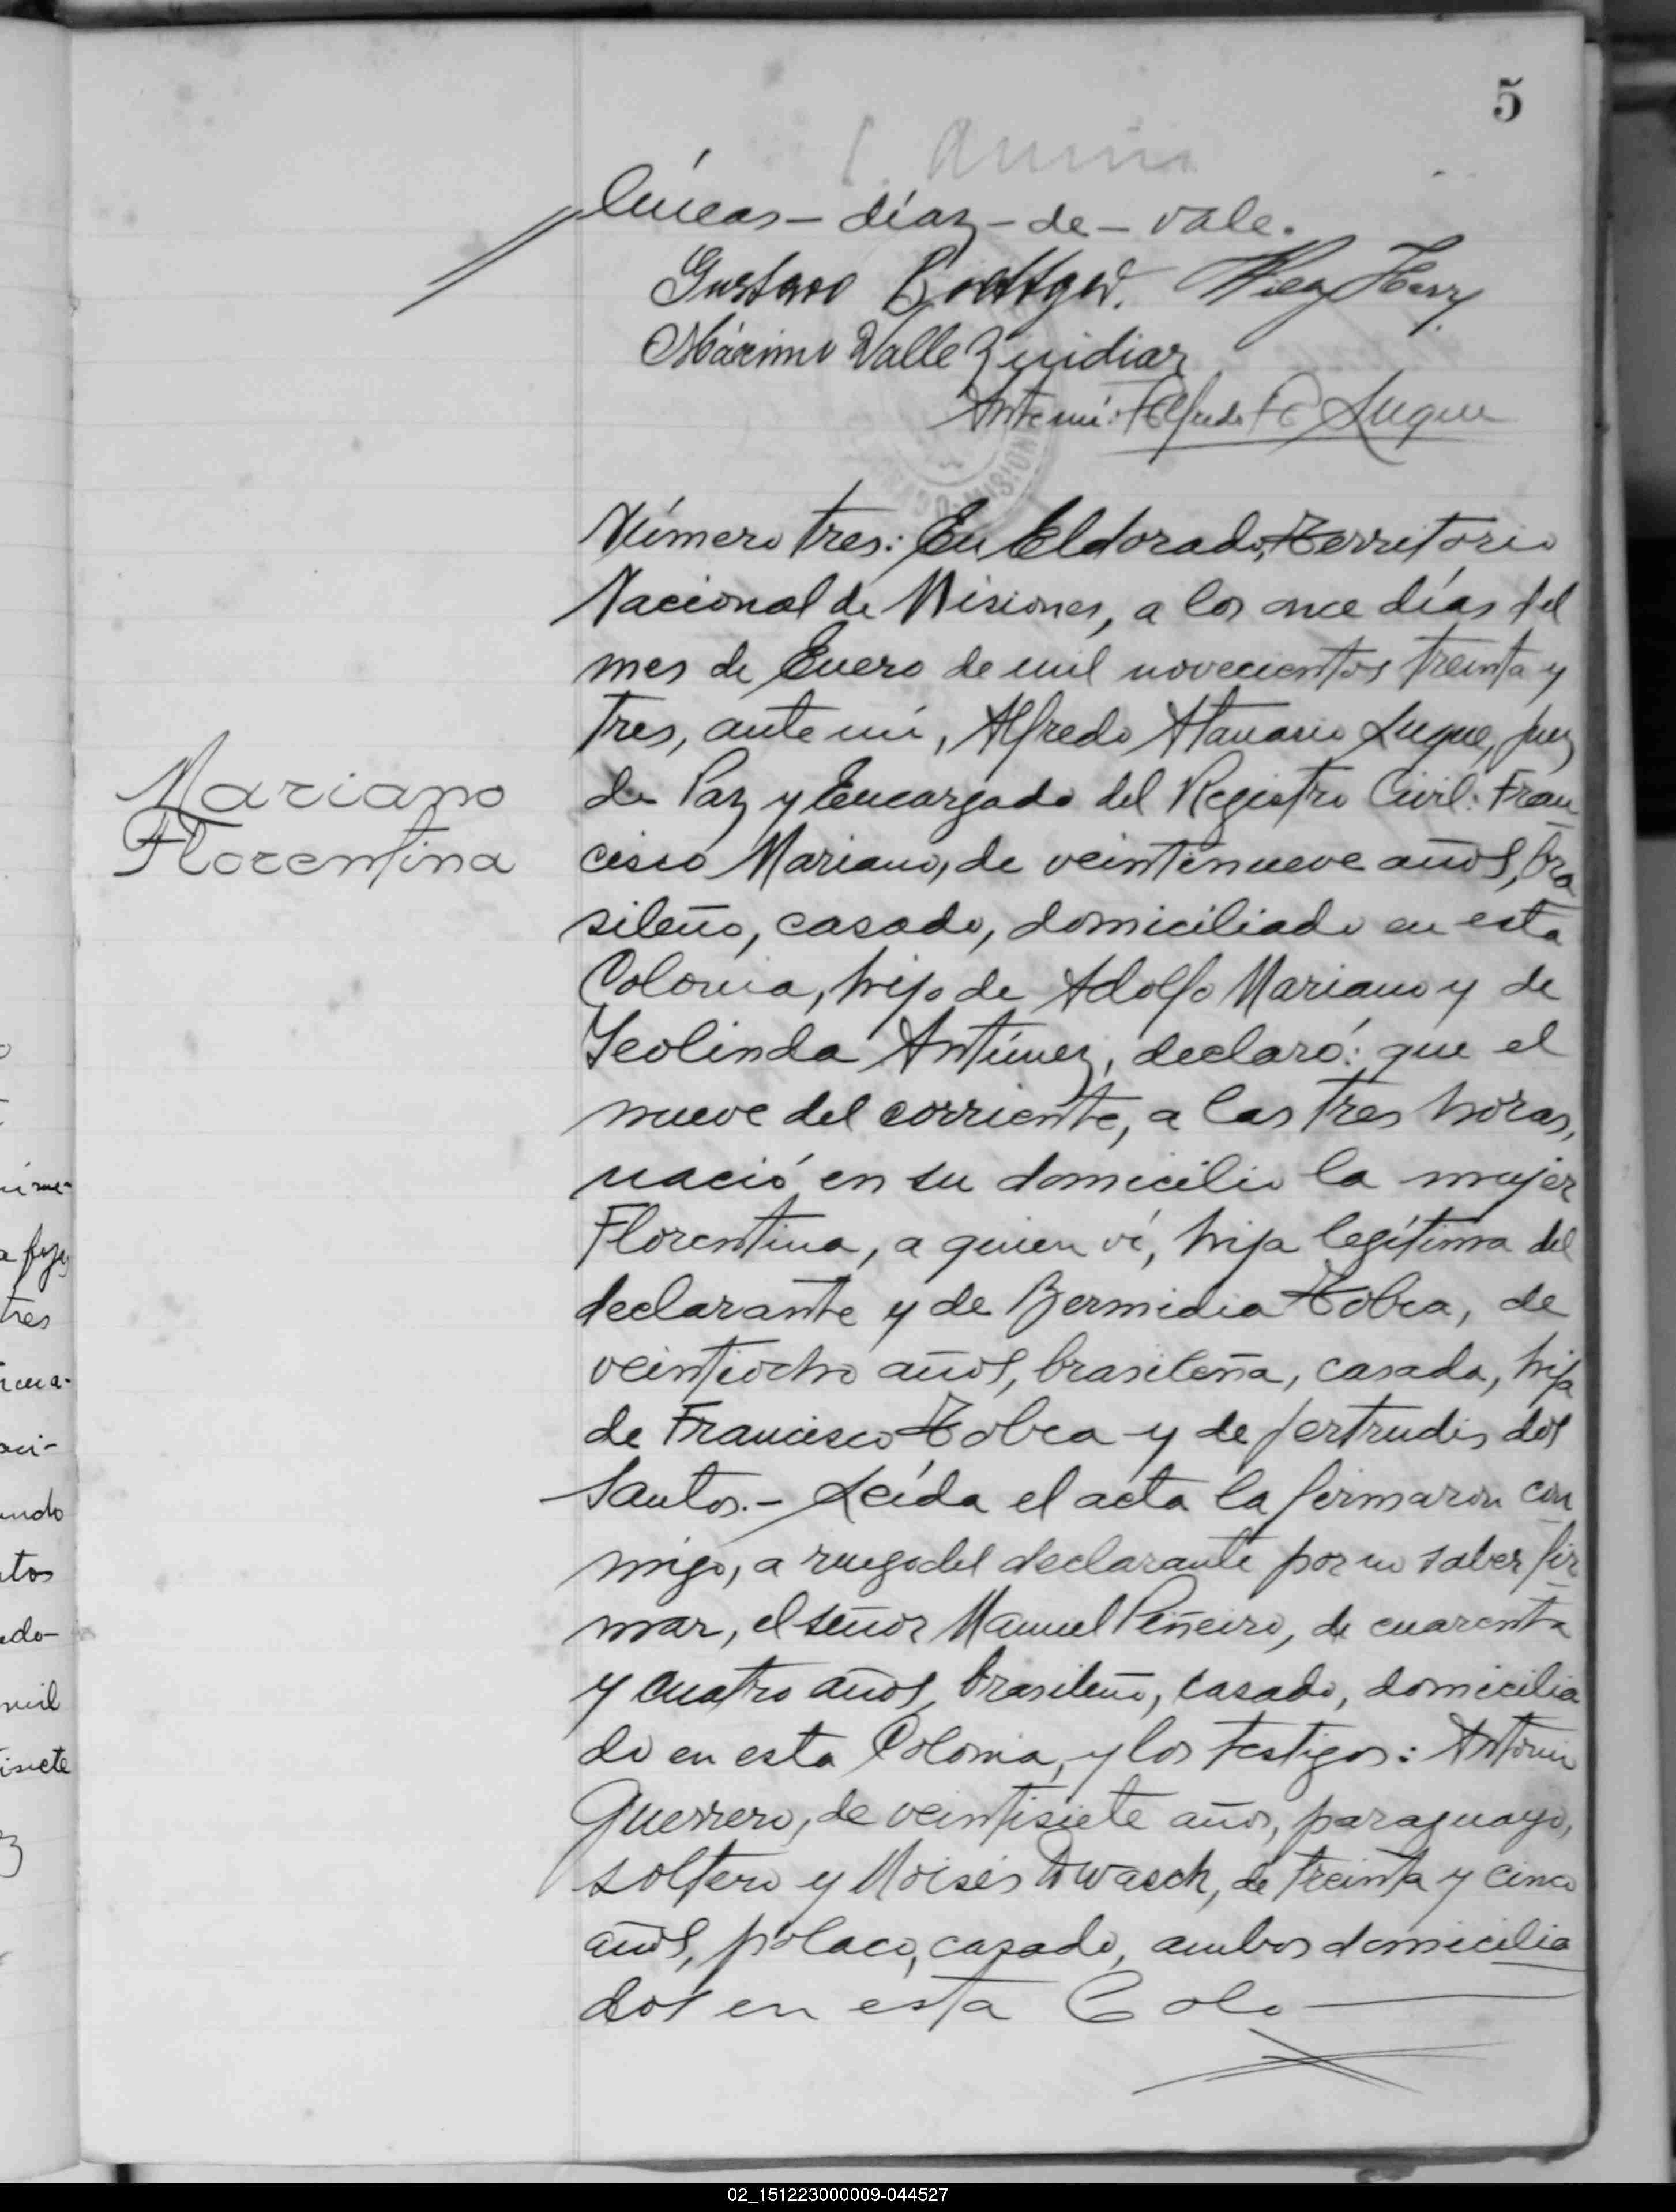 5
líneas - díaz - de - vale.
Gustavo
Máximo Valle
Ante mí: Alfredo A Luque
Número tres: En Eldorado, Territorio
Nacional de Misiones, a los once días del
mes de Enero de mil novecientos treinta y
tres, ante mí, Alfredo Atanasio Luque, Juez
de Paz y Encargado del Registro Civil: Fran
cisco Mariano, de veintenueve años, bra
sileño, casado, domiciliado en esta
Colonia, hijo de Adolfo Mariano y de
Teolinda Antúnez, declaró: que el
nueve del corriente, a las tres horas,
nació en su domicilio la mujer
Florentina, a quien ví, hija legítima del
declarante y de Bermidia Tobea, de
veintiocho años, brasileña, casada, hija
de Francisco Tobea y de Jertrudis dos
Santos.- Leída el acta la firmaron con
migo, a ruego del declarante por no saber fir
mar, el señor Manuel Piñeiro, de cuarenta
y cuatro años, brasileño, casado, domicilia
do en esta Colonia, y los testigos: Antonio
Guerrero, de veintisiete años, paraguayo,
soltero y Moisés Owasch, de treinta y cinco
años, polaco, casado, ambos domicilia
dos en esta Colo
Mariano
Florentina
02_151223000009-044527